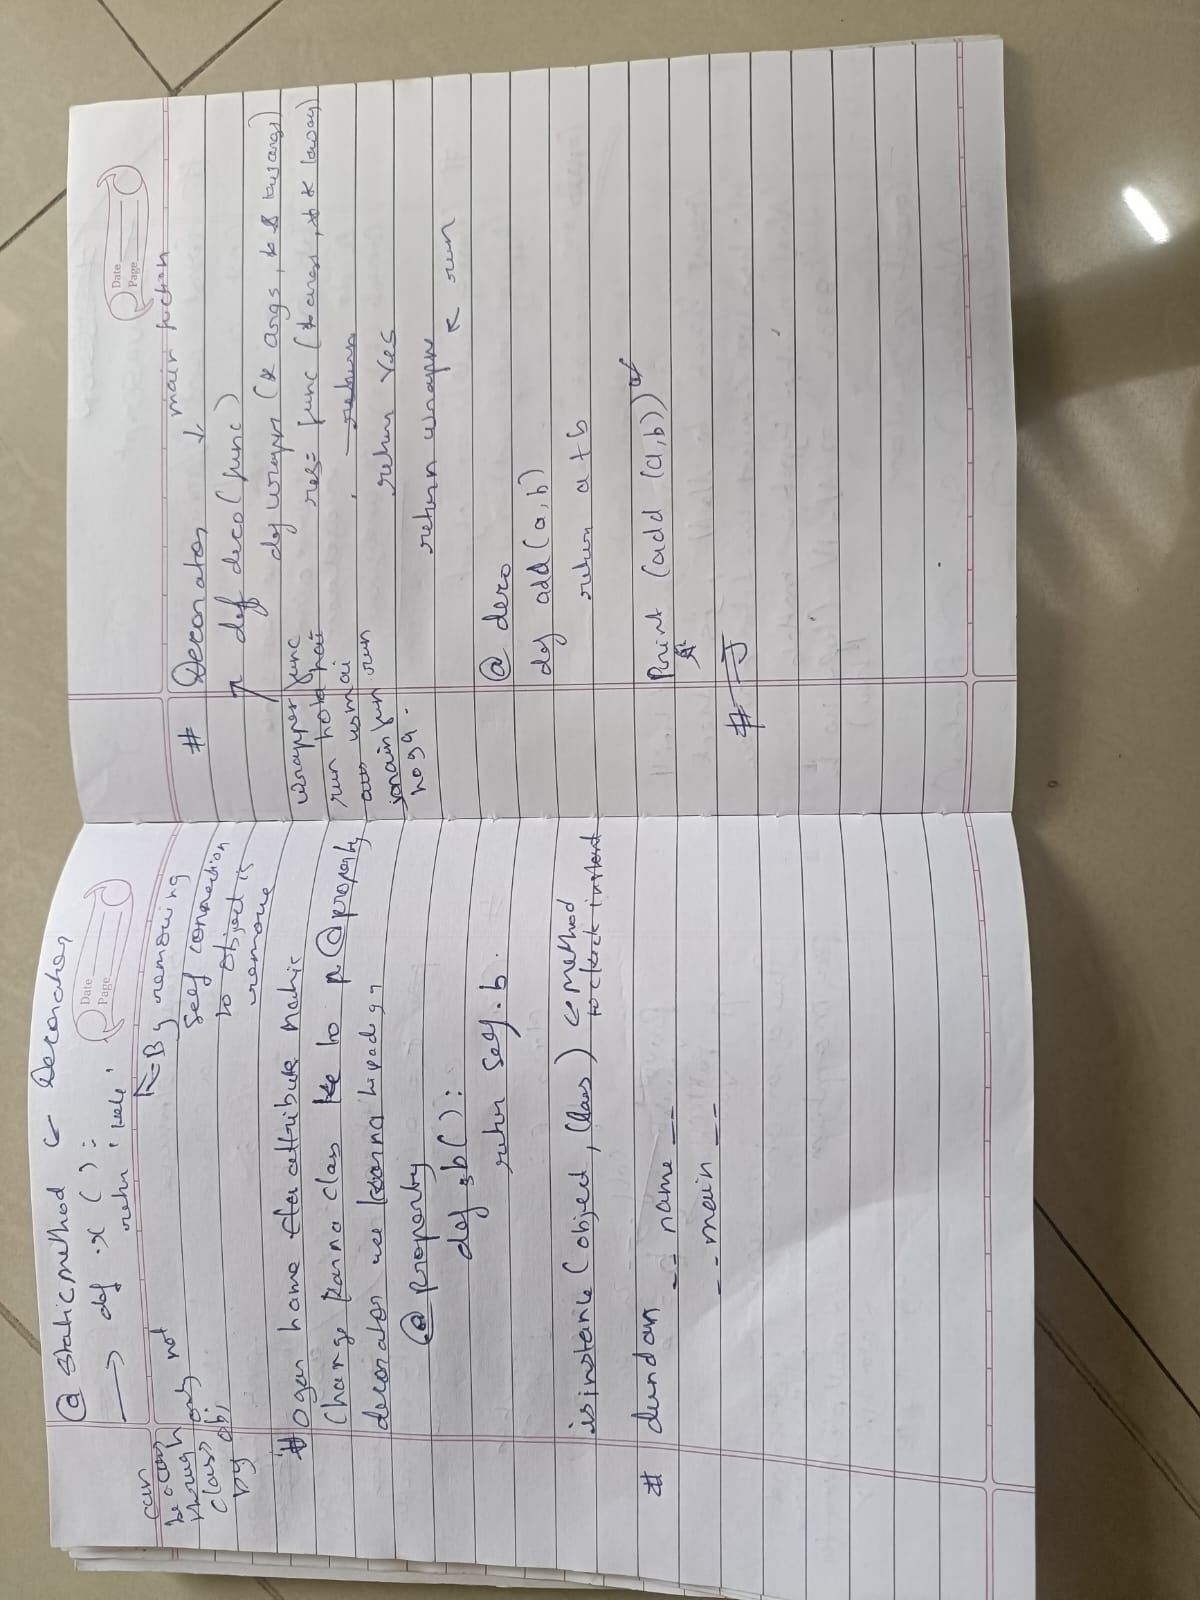 @ staticmethod ← Decorator
Date
Page
→ def x ( ) :
return 'hele'
By removing
self connection
to object is
remove
can
be access
through only not
class
by obj
# agar hame attribute nahi
change karna class ke to @property
decorator use karna hi padega
@property
def b( ) :
return self.b.
isinstance (object, class) ← method
to check instant
# dundar __ name __
__ main __
Date
Page
# Decorator
main fuction
def deco(func)
def wrapper (* args, ** kwargs)
res = func (*args, ** kwargs)
return
return res
return wrapper
run
wrapper func
run hota hai
aur usmai
main fun run
hoga.
@ deco
def add(a, b)
return a + b
Print (add (a, b))
#